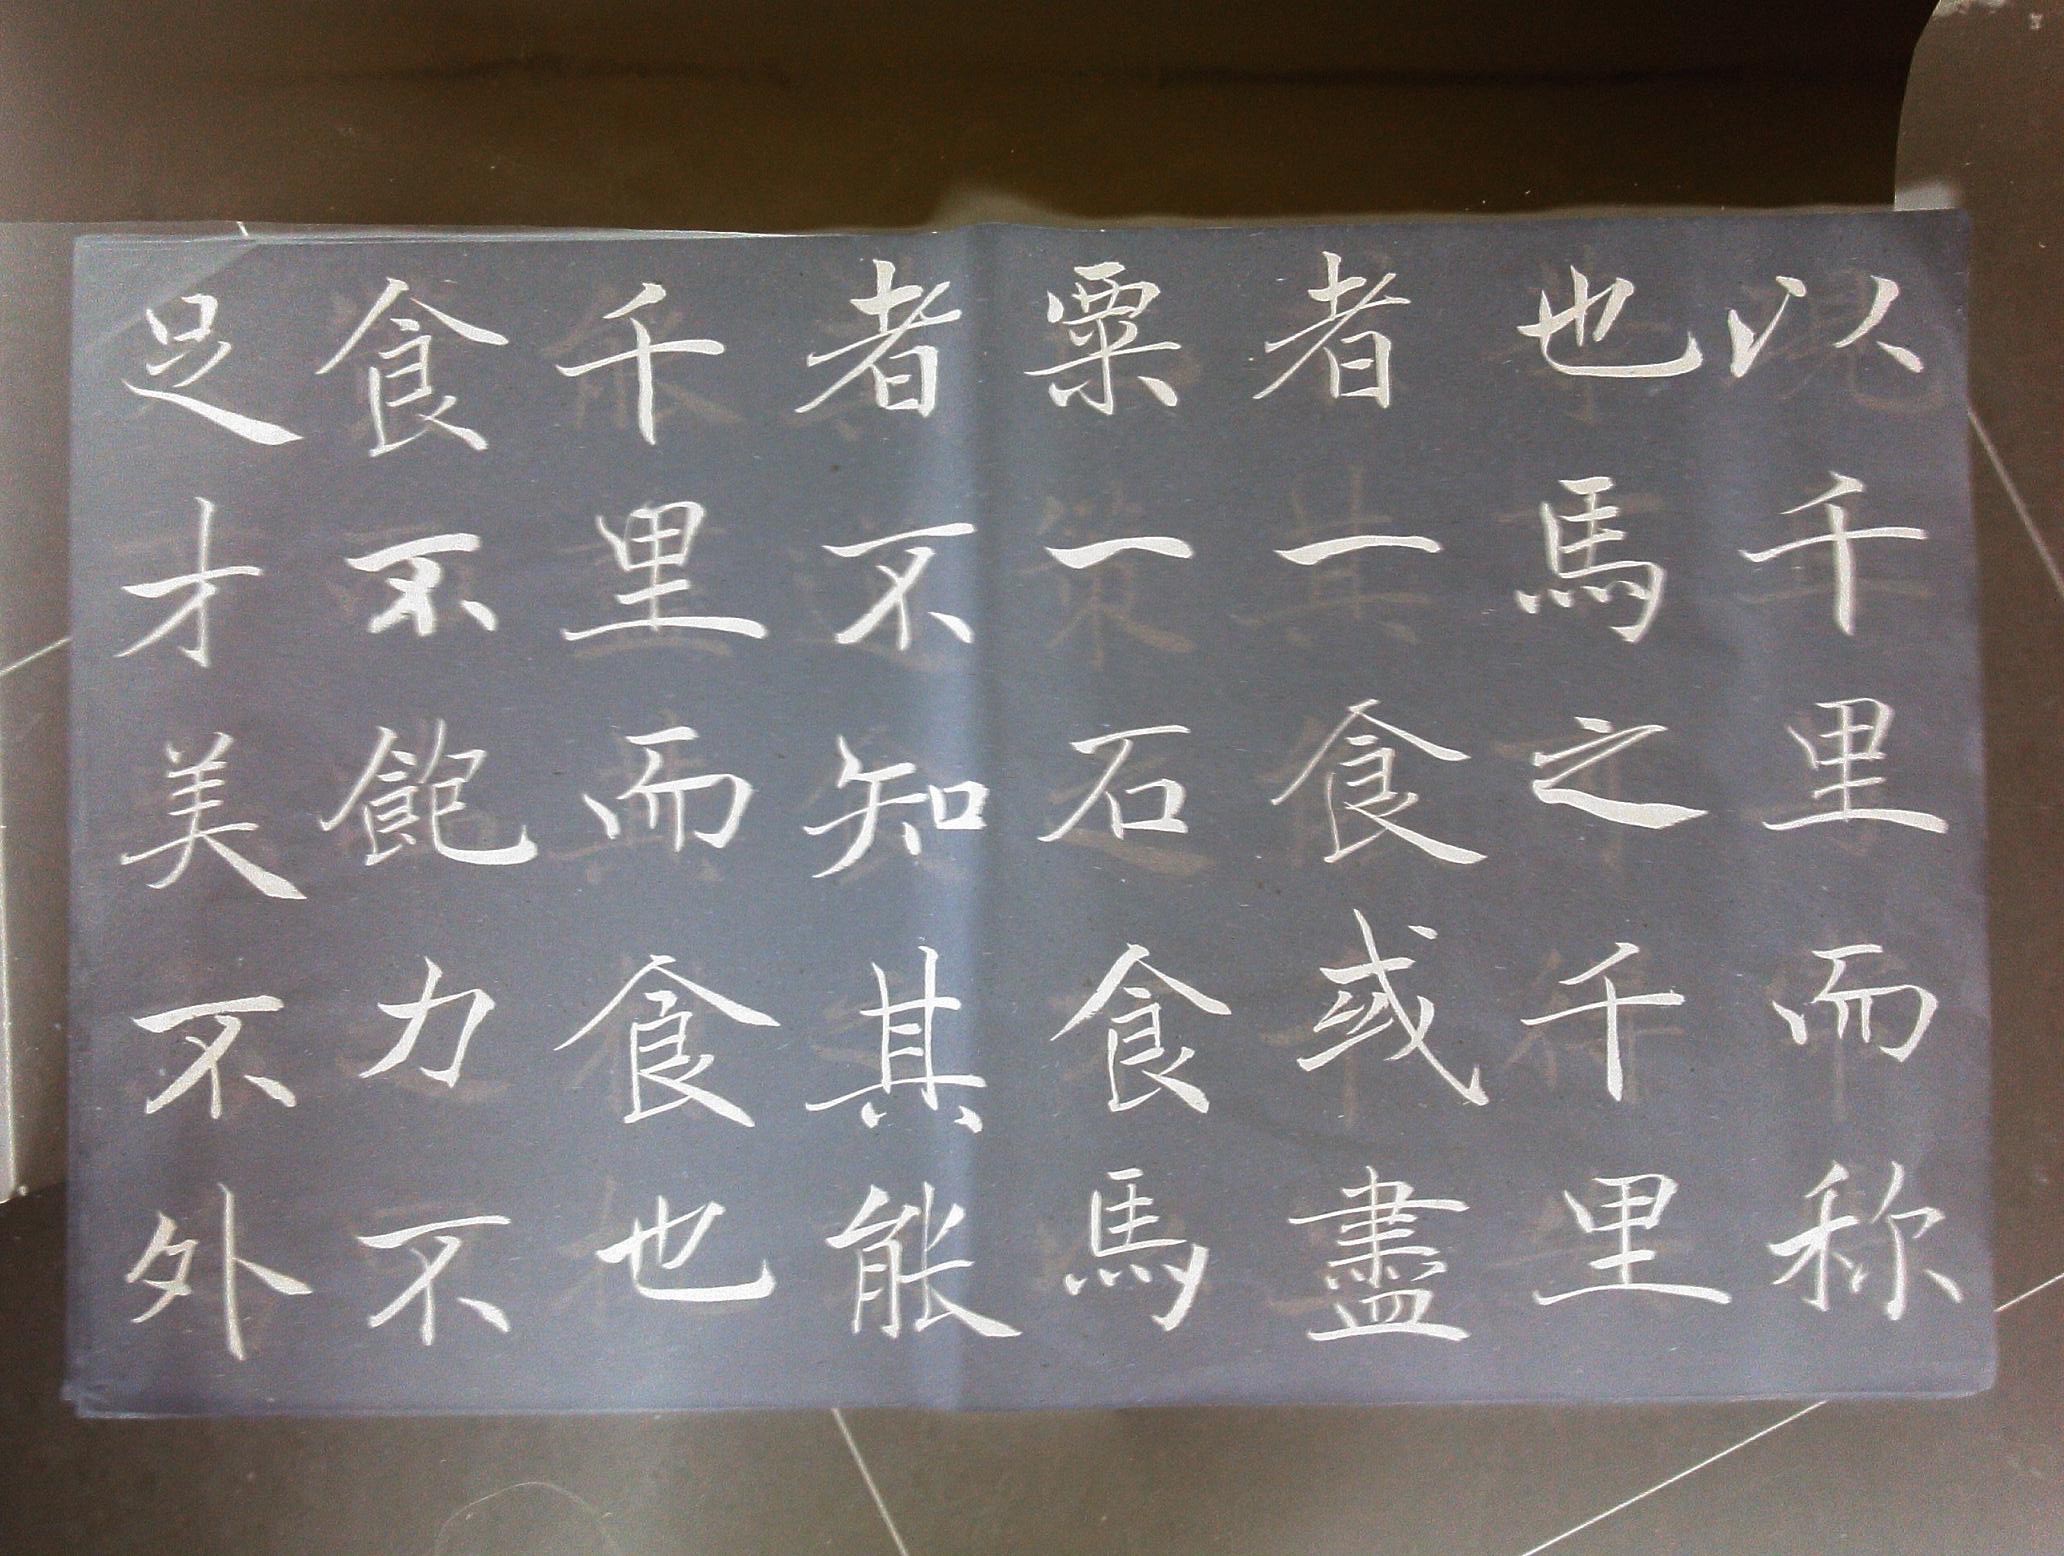 以千里而称
也馬之千里
者一食或盡
粟一石食馬
者不知其能
千里而食也
食不飽力不
足才美不外